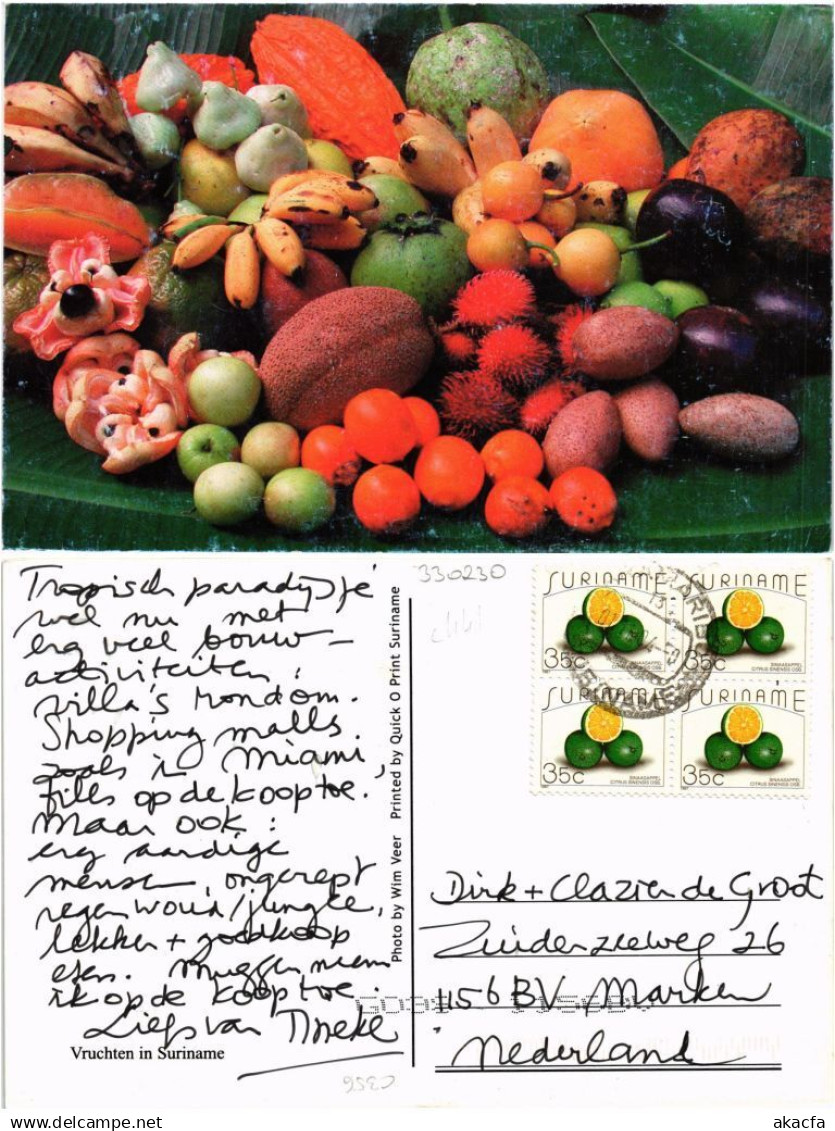 Tropisch paradijsje
wel nu met
erg veel bouw-
activiteiten:
villa's rondom.
Shopping malls
zoals in Miami,
files op de koop toe.
Maar ook:
erg aardige
mensen, ongerept
regenwoud/jungle,
lekker + goedkoop
eten. Muggen neem
ik op de koop toe.
Liefs van Tineke
Vruchten in Suriname
Photo by Wim Veer Printed by Quick O Print Suriname
330230
SURINAME
35c
SINAASAPPEL
CITRUS SINENSIS OSB.
SURINAME
35c
SINAASAPPEL
CITRUS SINENSIS OSB.
SURINAME
35c
SINAASAPPEL
CITRUS SINENSIS OSB.
SURINAME
35c
SINAASAPPEL
CITRUS SINENSIS OSB.
Dirk + Clazien de Groot
Zuiderzeeweg 26
1156 BV Marken
Nederland
akacfa